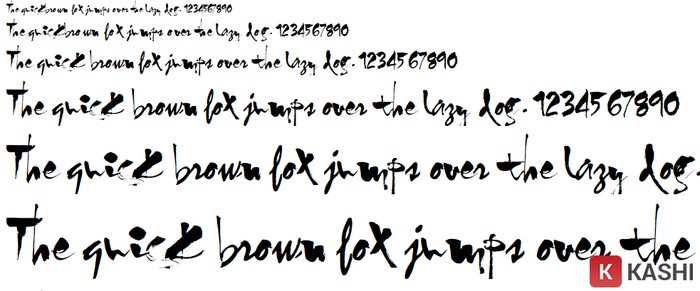 The quick brown fox jumps over the lazy dog. 1234567890
The quick brown fox jumps over the lazy dog. 1234567890
The quick brown fox jumps over the lazy dog. 1234567890
The quick brown fox jumps over the lazy dog. 1234567890
The quick brown fox jumps over the lazy dog.
The quick brown fox jumps over the
K KASHI